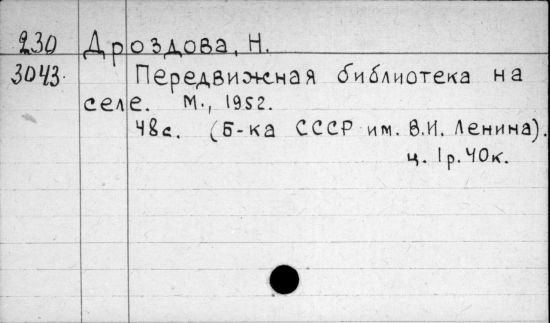 230 Дроздова, Н.
3043. Передвижная библиотека на
селе. М., 1952.
48с. (Б-ка СССР им. В.И. Ленина).
ц. 1р. 40к.